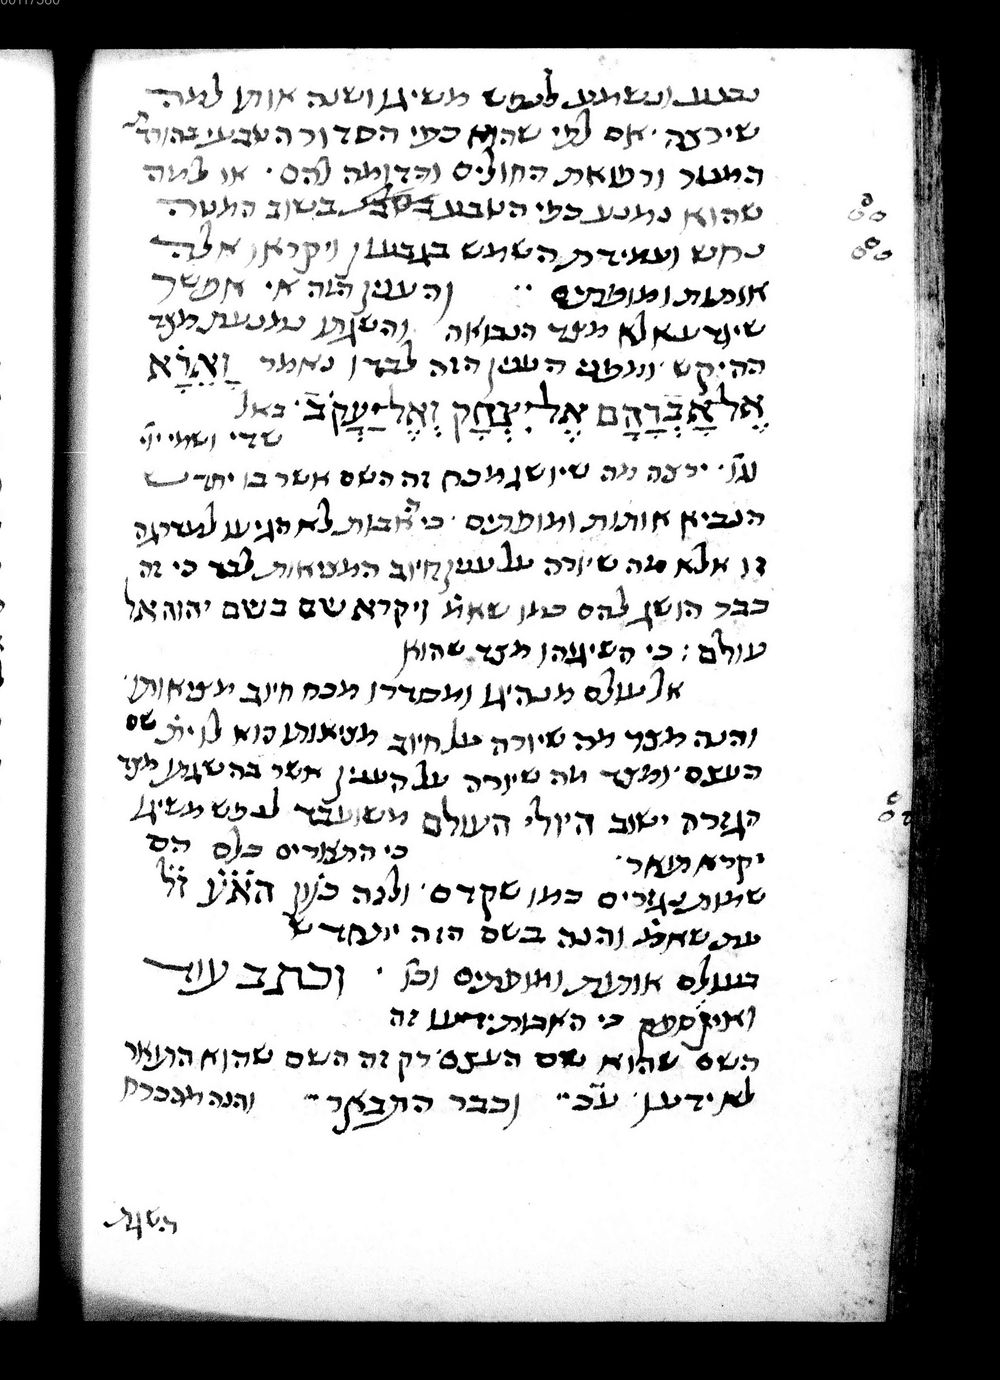 נכנע ונשמע לנפש משיגו ושנה אותו למה
שירצה אם למי שהוא כפי הסדור הטבעי בהורדת
המטר ורפואת החולים והדומה להם או למה
שהוא נמנע כפי הטבע בשוב המטה
נחש ועמידת השמש בגבעון ויקראו אלה
אותות ומופתים והענין הזה אי אפשר
שיודע אלא מצד הנבואה והשגתו נמנעת מצד
ההיקש ומפני הענין הזה לבדו נאמר וָאֵרָא
אֶל אַבְרָהָם אֶל יִצְחָק וְאֶל יַעֲקֹב באל
שדי ושמי ייי
וגו' ירצה מה שיושג מכח זה השם אשר בו יחדש
הנביא אותות ומופתים כי האבות לא הגיעו למדרגה
זו אלא מה שיורה על ענין חיוב המציאות לבד כי זה
כבר הושג להם כמו שאמ' ויקרא שם בשם יהוה אל
עולם : כי השיגוהו מצד שהוא
אל עולם מנהיגו ומסדרו מכח חיוב מציאותו
והנה מצד מה שיורה על חיוב מציאותו הוא לו ית' שם
העצם ומצד מה שיורה על הענין אשר בהשגתו מצד
הגזרה ישוב היולי העולם משועבד לנפש משיגו
יקרא תואר כי התארים כלם הם
שמות נגזרים כמו שקדם ולזה כוון הא"ע ז"ל
עת שאמ' והנה בשם הזה יתחדש
בעולם אותות ומופתים וכו' וכתב עוד
ואין ספק כי האבות ידעו זה
השם שהוא שם העצם רק זה השם שהוא התואר
לא ידעו ע"כ וכבר התבאר והנה מהכרח
השגת